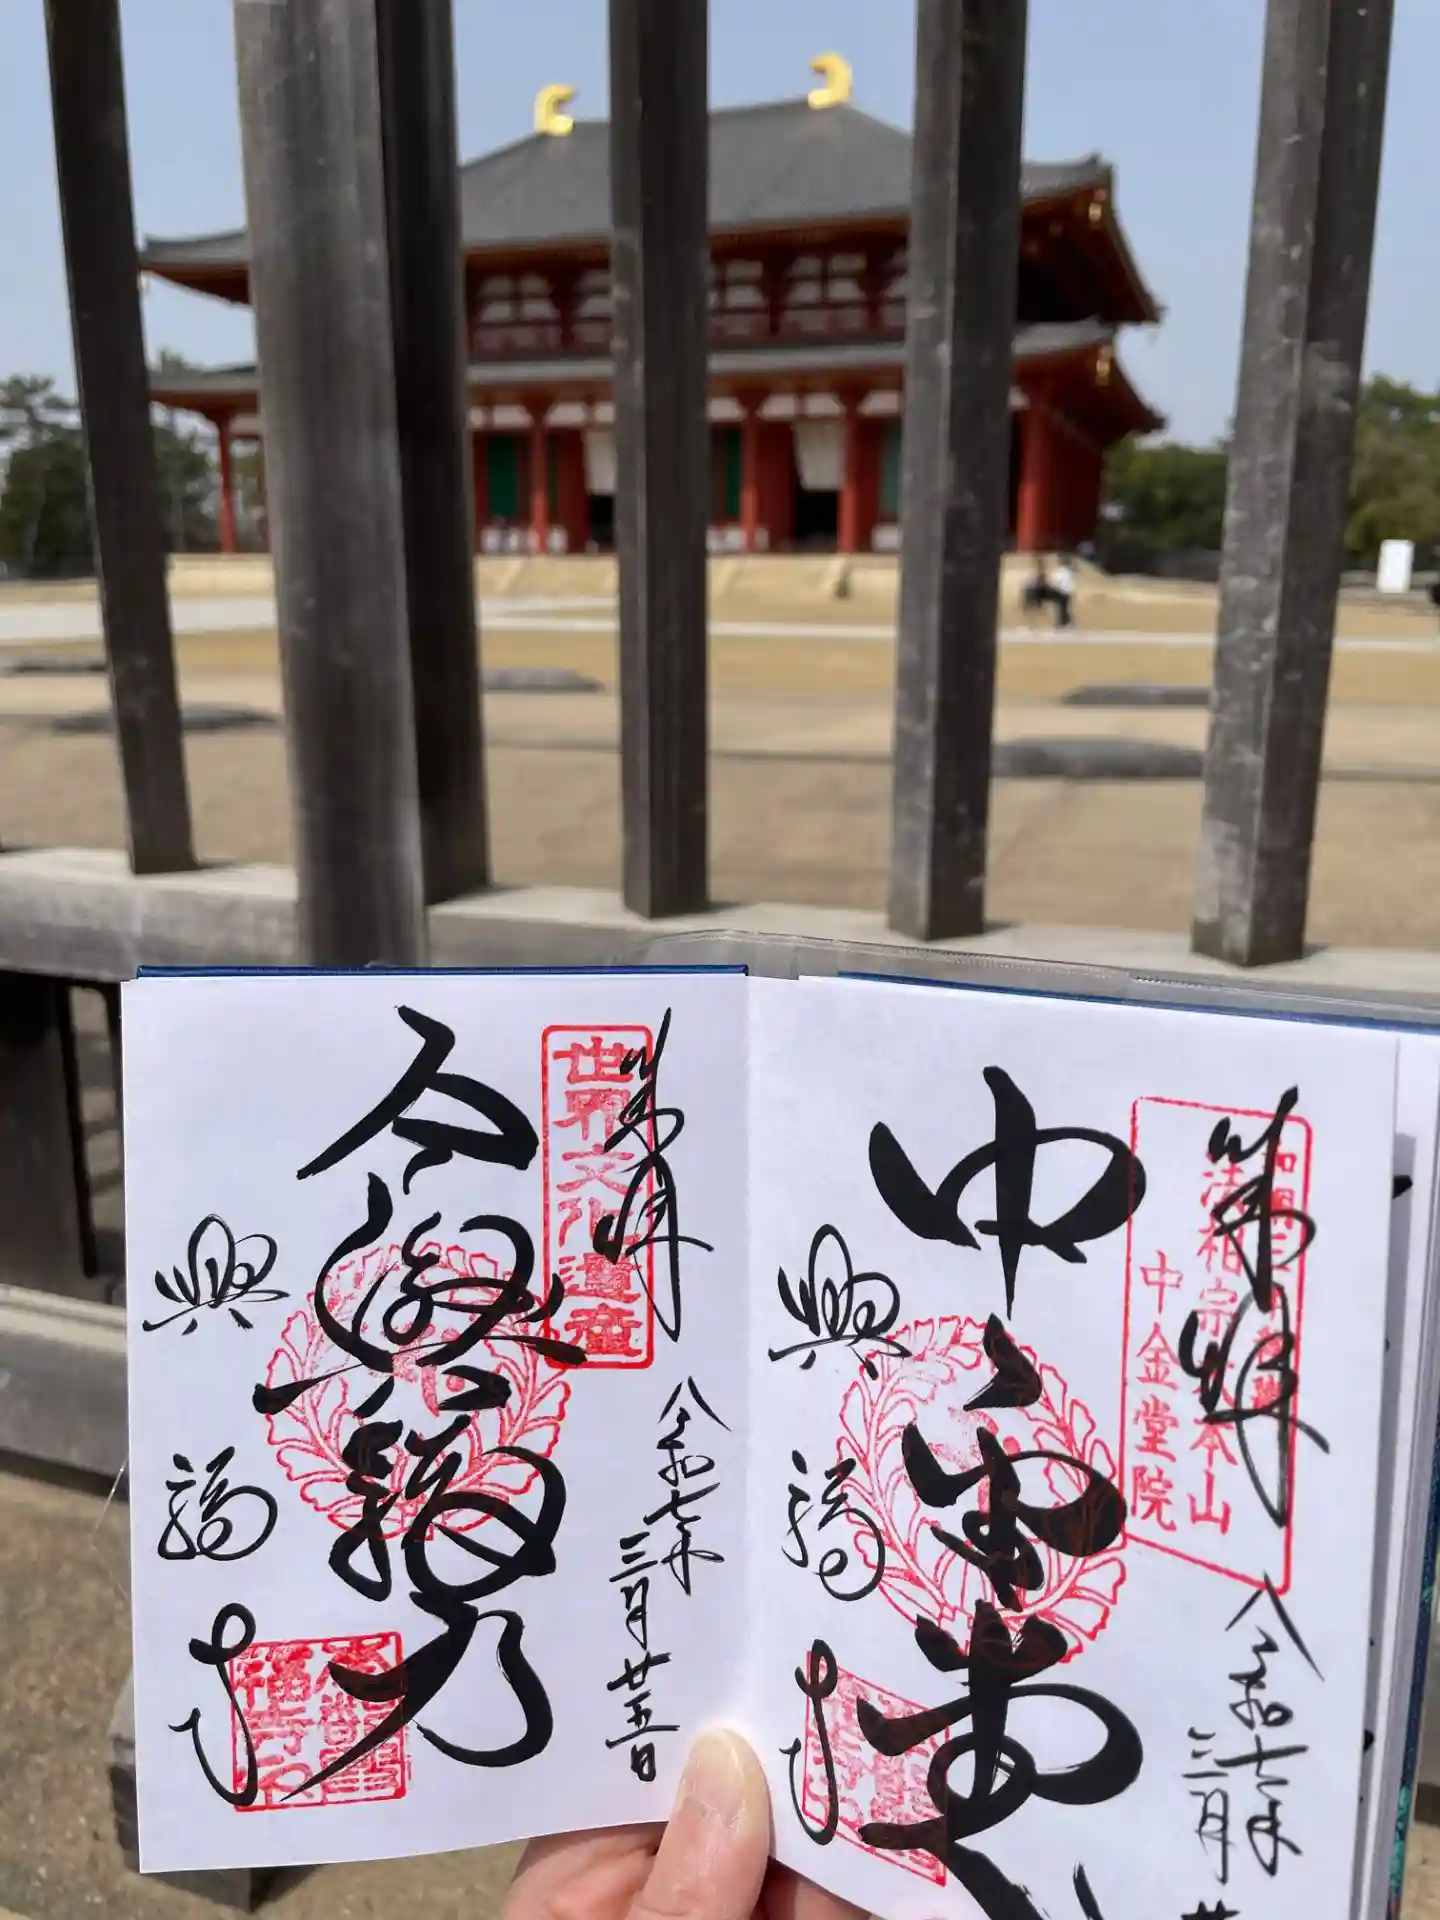 奉拝
令和七年
三月廿
法相宗大本山
中金堂院
中金堂
興福寺
奉拝
世界文化遺産
令和七年
三月廿五日
令興福力
興福寺